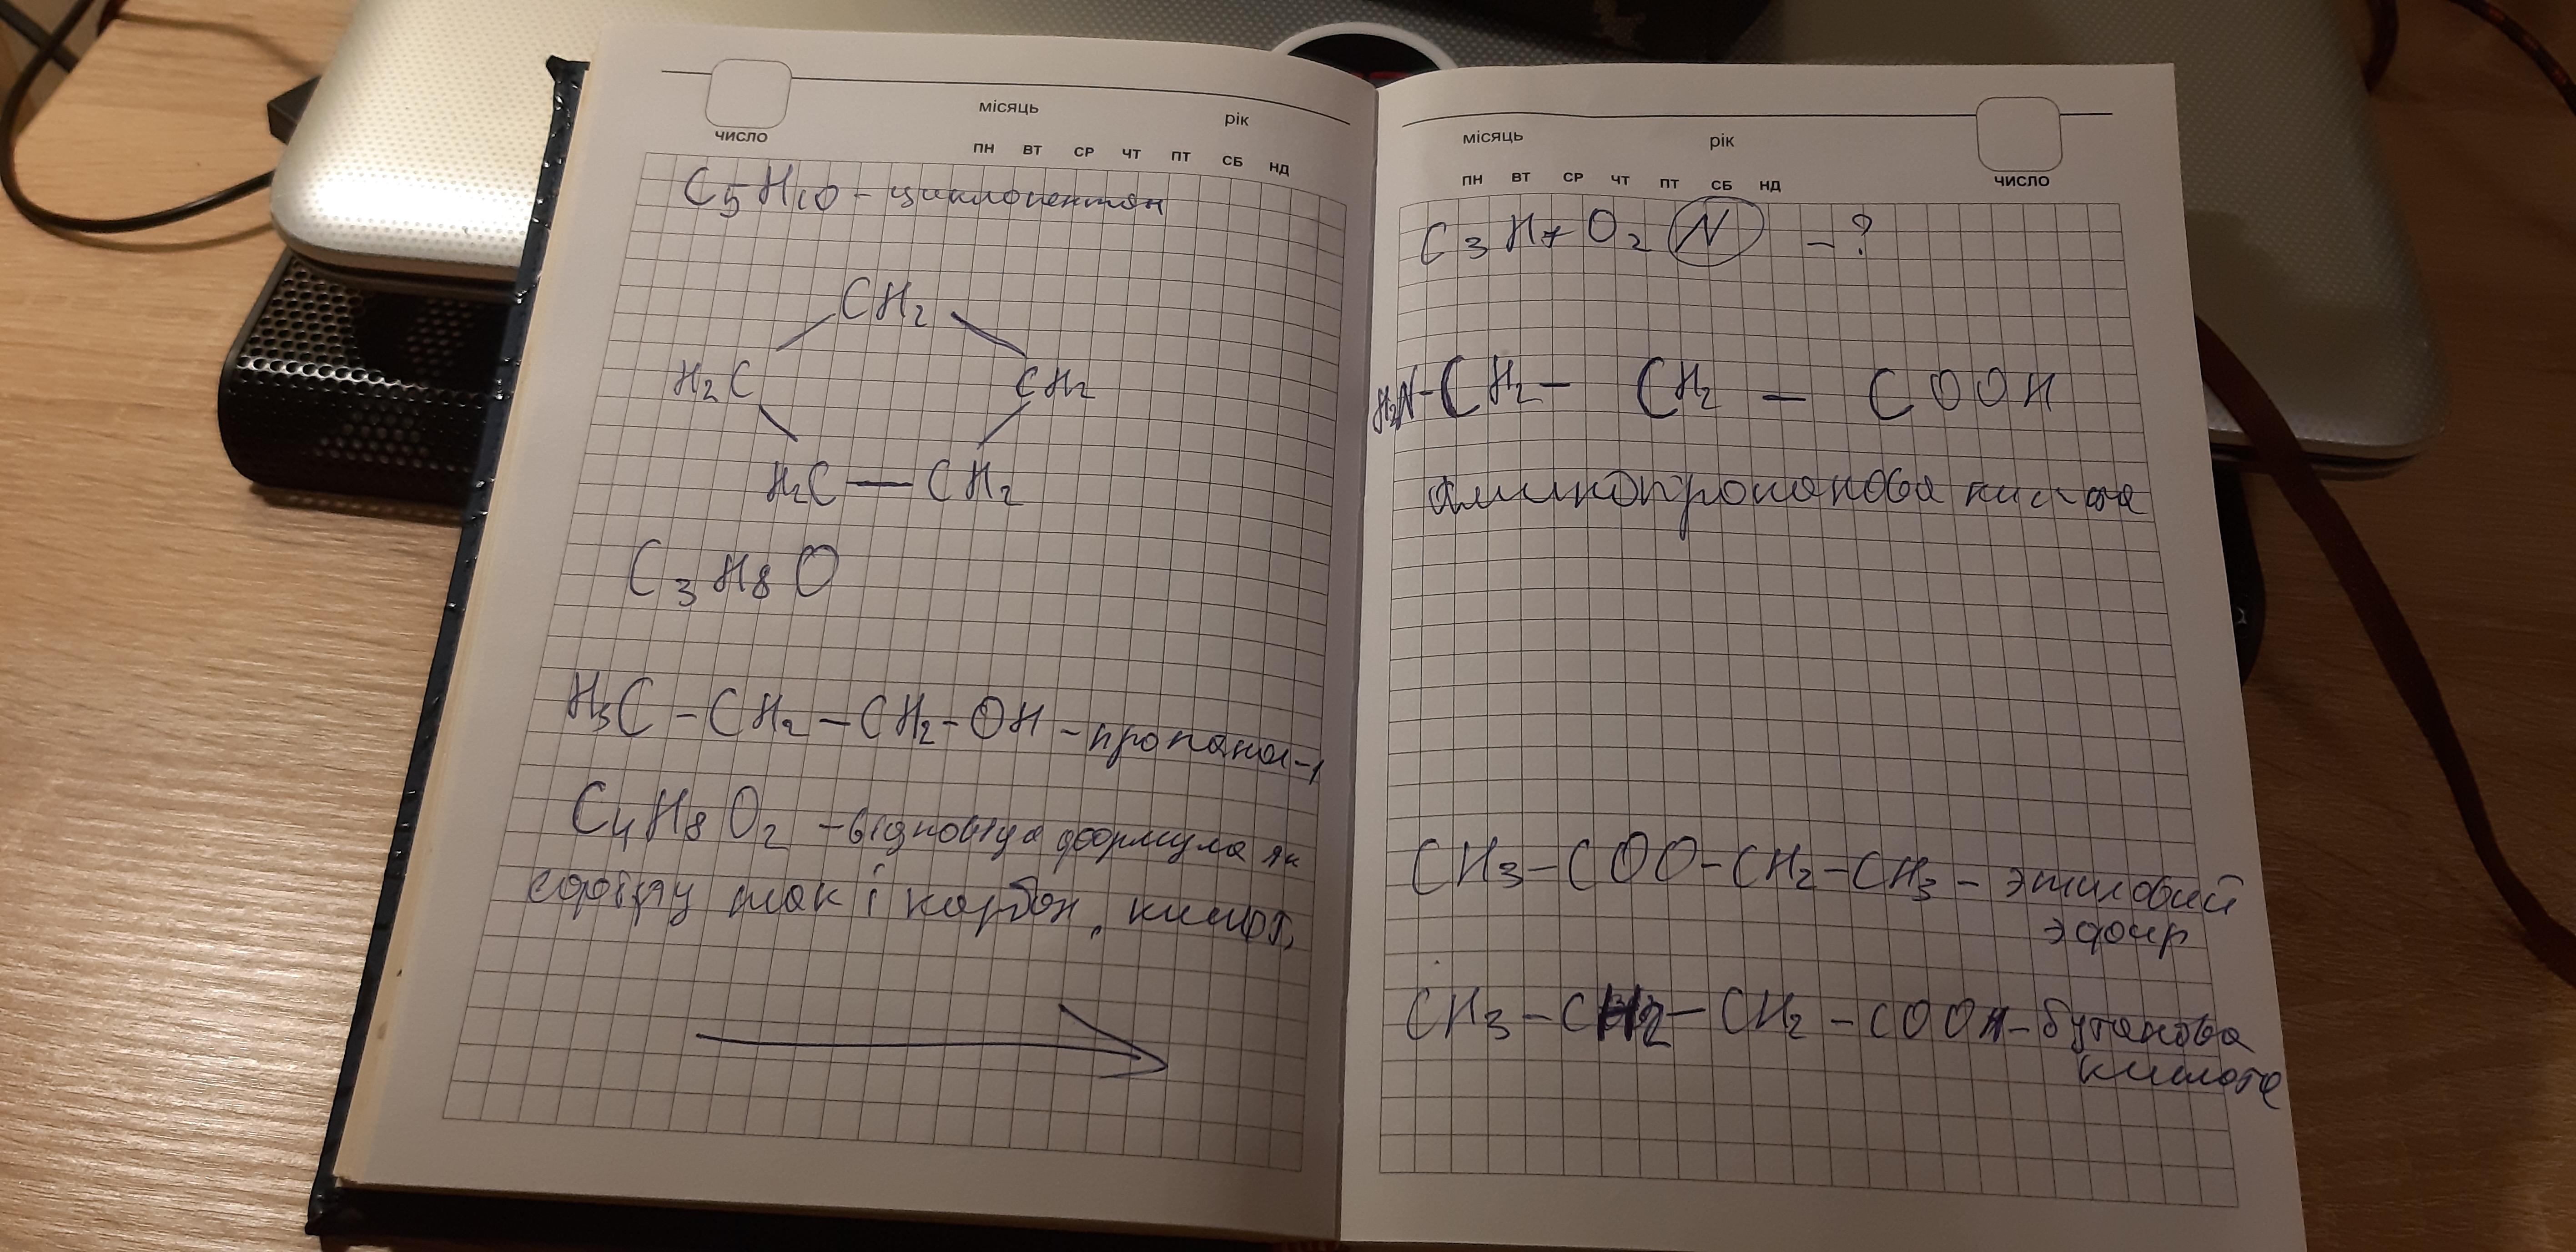 місяць рік
ЧИСЛО
ПН ВТ СР ЧТ ПТ СБ НД
C5H10 - циклопентан
CH2
H2C CH2
H2C — CH2
C3H8O
H3C - CH2 - CH2 - OH - пропанол-1
C4H8O2 - відповідна формула як
ефіру так і карбон. кислот,
місяць рік
ПН ВТ СР ЧТ ПТ СБ НД
ЧИСЛО
C3H7O2N - ?
H2N - CH2 - CH2 - COOH
амінопропанова кислота
CH3 - COO - CH2 - CH3 - этиловий
эфир
CH3 - CH2 - CH2 - COOH - бутанова
кислота